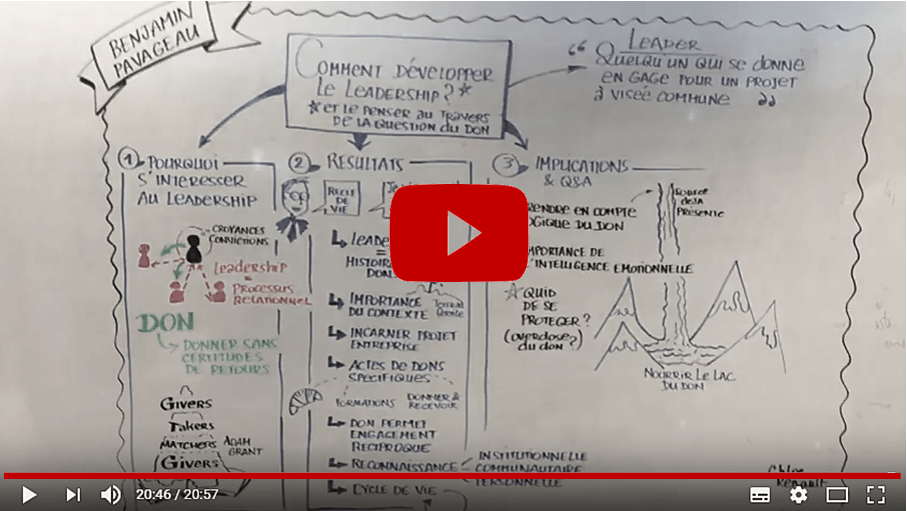 BENJAMIN
PAVAGEAU
COMMENT DÉVELOPPER
LE LEADERSHIP?*
* ET LE PENSER AU TRAVERS
DE LA QUESTION DU DON
LEADER
“ QUELQU'UN QUI SE DONNE
EN GAGE POUR UN PROJET
À VISÉE COMMUNE ”
1 POURQUOI
S'INTERESSER
AU LEADERSHIP
CROYANCES
CONVICTIONS
LEADERSHIP
=
PROCESSUS
RELATIONNEL
DON
DONNER SANS
CERTITUDES
DE RETOURS
GIVERS
TAKERS
MATCHERS
ADAM
GRANT
GIVERS
2 RESULTATS
RECIT
DE
VIE
LEADE
=
HISTOIR
DON
IMPORTANCE
DU CONTEXTE
INCARNER PROJET
ENTREPRISE
ACTES DE DONS
SPECIFIQUES
FORMATIONS
DONNER &
RECEVOIR
DON PERMET
ENGAGEMENT
RECIPROQUE
RECONNAISSANCE
INSTITUTIONNELLE
COMMUNAUTAIRE
PERSONNELLE
CYCLE DE VIE
3 IMPLICATIONS
& Q&A
RENDRE EN COMPTE
OGIQUE DU DON
SOURCE
DE LA
PRÉSENTE
MPORTANCE DE
L'INTELLIGENCE EMOTIONNELLE
QUID
DE SE
PROTEGER?
(OVERDOSE?
DU DON)
NOURRIR LE LAC
DU DON
20:46 / 20:57